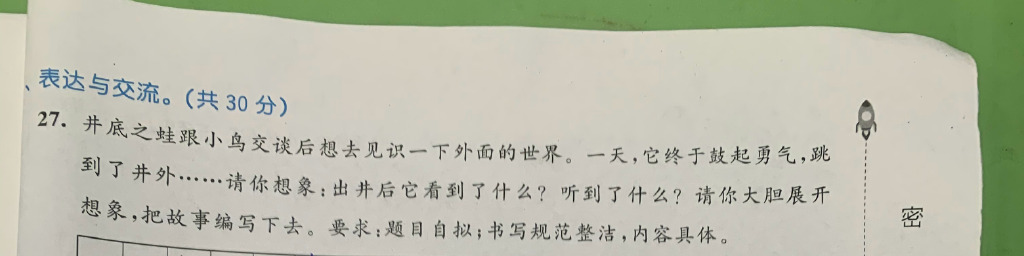 、表达与交流。(共 30 分)
27. 井底之蛙跟小鸟交谈后想去见识一下外面的世界。一天,它终于鼓起勇气,跳
到了井外……请你想象:出井后它看到了什么?听到了什么?请你大胆展开
想象,把故事编写下去。要求:题目自拟;书写规范整洁,内容具体。
密